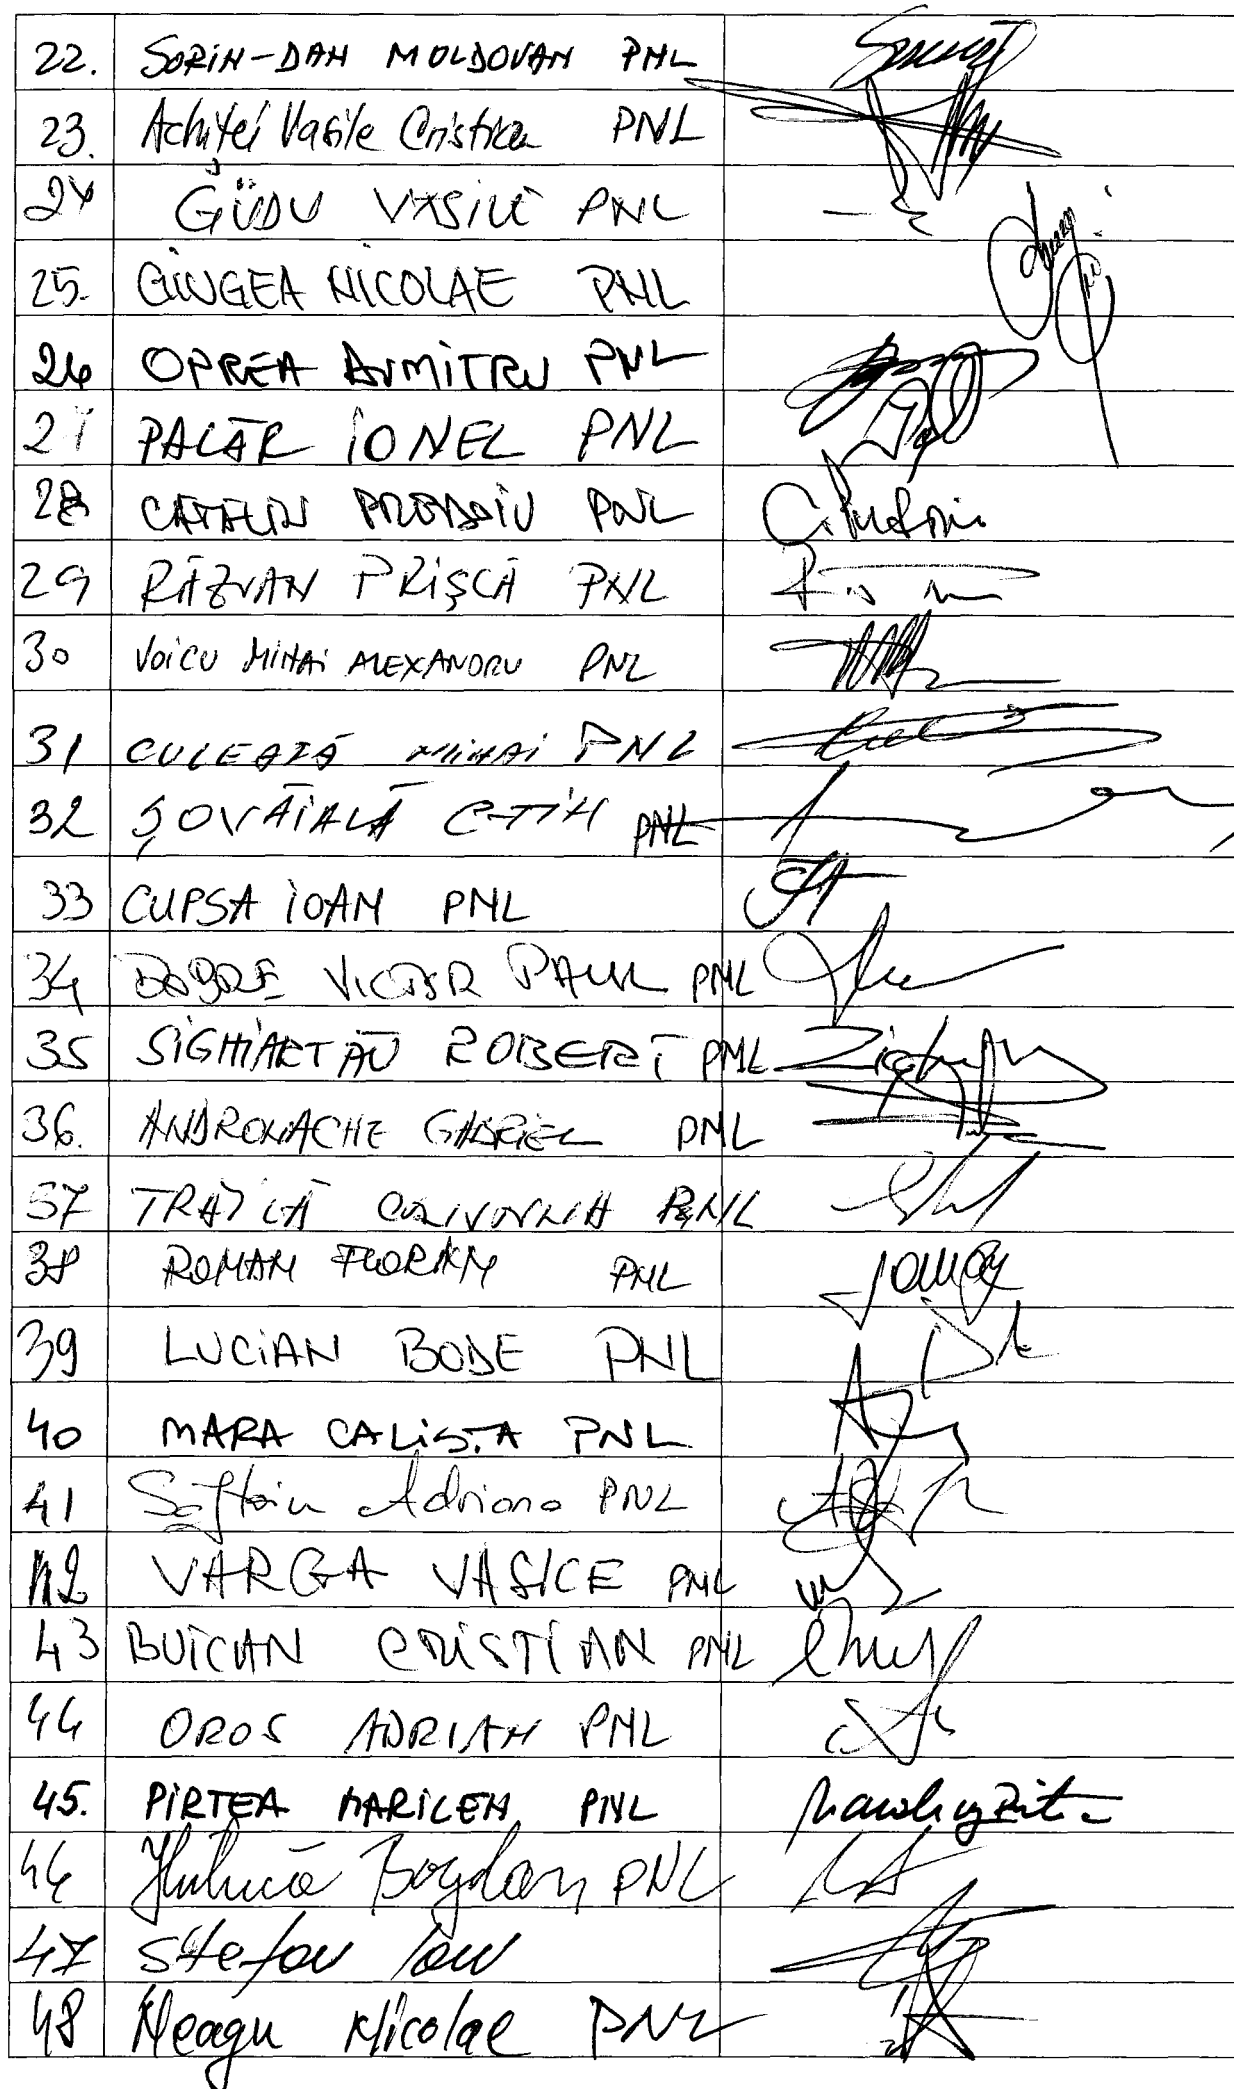 22. SORIN-DAN MOLDOVAN PNL
23. Achiței Vasile Cristica PNL
24 GÜDU VASILE PNL
25. GIUGEA NICOLAE PNL
26 OPREA DUMITRU PNL
27 PALĂR IONEL PNL
28 CĂTĂLIN PREDOIU PNL
29 RĂZVAN PRIȘCĂ PNL
30 VOICU MIHAI ALEXANDRU PNL
31 CULEAȚĂ MIHAI PNL
32 ȘOVĂIALĂ C-TIN PNL
33 CUPSA IOAN PNL
34 DOBRE VICTOR PAUL PNL
35 SIGHIARTĂU ROBERT PNL
36. ANDRONACHE GABRIEL PNL
37 TRĂILĂ PNL
38 ROMAN FLORIN PNL
39 LUCIAN BODE PNL
40 MARA CALISTA PNL
41 Săftoiu Adriana PNL
42 VARGA VASILE PNL
43 BUICAN CRISTIAN PNL
44 OROS ADRIAN PNL
45. PIRTEA MARILEN PNL
46 Huțucă Bogdan PNL
47 Stefan Ion
48 Neagu Nicolae PNL